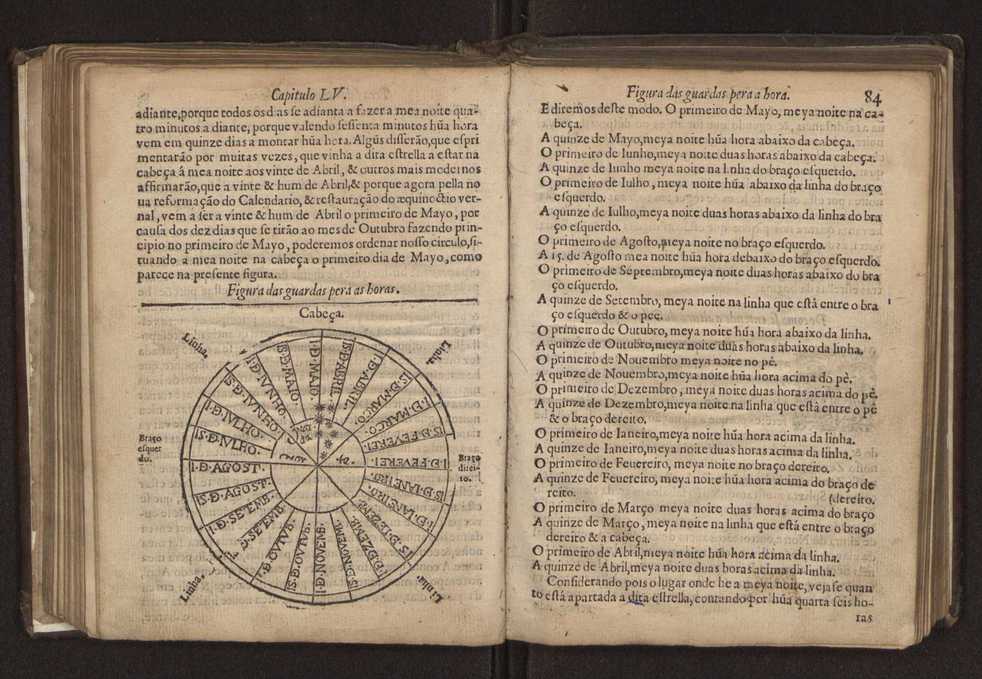 Capitulo LV.
adiante,porque todos os dias se adianta a fazer a mea noite qua-
tro minutos a diante, porque valendo sessenta minutos hũa hora
vem em quinze dias a montar hũa hora. Algũs disserão,que espri
mentarão por muitas vezes, que vinha a dita estrella a estar na
cabeça â mea noite aos vinte de Abril, & outros mais modernos
affirmarão,que a vinte & hum de Abril,& porque agora pella no
ua reformação do Calendario, & restauração do æquinoctio ver-
nal, vem a ser a vinte & hum de Abril o primeiro de Mayo, por
causa dos dez dias que se tirão ao mes de Outubro fazendo prin-
cipio no primeiro de Mayo, poderemos ordenar nosso circulo,si-
tuando a mea noite na cabeça o primeiro dia de Mayo, como
parece na presente figura.
Figura das guardas pera as horas.
Cabeça.
Linha.
Linha.
Braço
esquer
do.
Braço
direi-
to.
Linha.
Linha.
1·D·MAIO
15·D·ABRIL
1·D·ABRIL
15·D·MARÇO
1·D·MARÇO
15·D·FEVEREI
1·D·FEVEREI
15·D·IANEIRO
1·D·IANEIRO
15·D·DEZEME
1·D·DEZEME
15·D·NOVEMB
1·D·NOVEMB
15·D·OVTVB
1·D·OVTVB
15·D·SETEMB
1·D·SETEMB
15·D·AGOST
1·D·AGOST
15·D·IVLHO
1·D·IVLHO
15·D·IVNHO
1·D·IVNHO
15·D·MAIO
Figura das guardas pera a hora.
84
E diremos deste modo. O primeiro de Mayo, meya noite na ca-
beça.
A quinze de Mayo,meya noite hũa hora abaixo da cabeça.
O primeiro de Iunho,meya noite duas horas abaixo da cabeça.
A quinze de Iunho meya noite na linha do braço esquerdo.
O primeiro de Iulho, meya noite hũa abaixo da linha do braço
esquerdo.
A quinze de Iulho,meya noite duas horas abaixo da linha do bra
ço esquerdo.
O primeiro de Agosto,meya noite no braço esquerdo.
A 15. de Agosto mea noite hũa hora debaixo do braço esquerdo.
O primeiro de Septembro,meya noite duas horas abaixo do bra
ço esquerdo.
A quinze de Setembro, meya noite na linha que está entre o bra
ço esquerdo & o pee.
O primeiro de Outubro, meya noite hũa hora abaixo da linha.
A quinze de Outubro,meya noite duas horas abaixo da linha.
O primeiro de Nouembro meya noite no pê.
A quinze de Nouembro,meya noite hũa hora acima do pê.
O primeiro de Dezembro, meya noite duas horas acima do pê.
A quinze de Dezembro,meya noite na linha que está entre o pê
& o braço dereito.
O primeiro de Ianeiro,meya noite hũa hora acima da linha.
A quinze de Ianeiro,meya noite duas horas acima da linha.
O primeiro de Feuereiro, meya noite no braço dereito.
A quinze de Feuereiro, meya noite hũa hora acima do braço de
reito.
(dereito.
O primeiro de Março meya noite duas horas acima do braço
A quinze de Março, meya noite na linha que está entre o braço
dereito & a cabeça.
O primeiro de Abril,meya noite hũa hora acima da linha.
A quinze de Abril,meya noite duas horas acima da linha.
Considerando pois o lugar onde he a meya noite, veja se quan
to está apartada a dita estrella, contando por hũa quarta seis ho-
ras